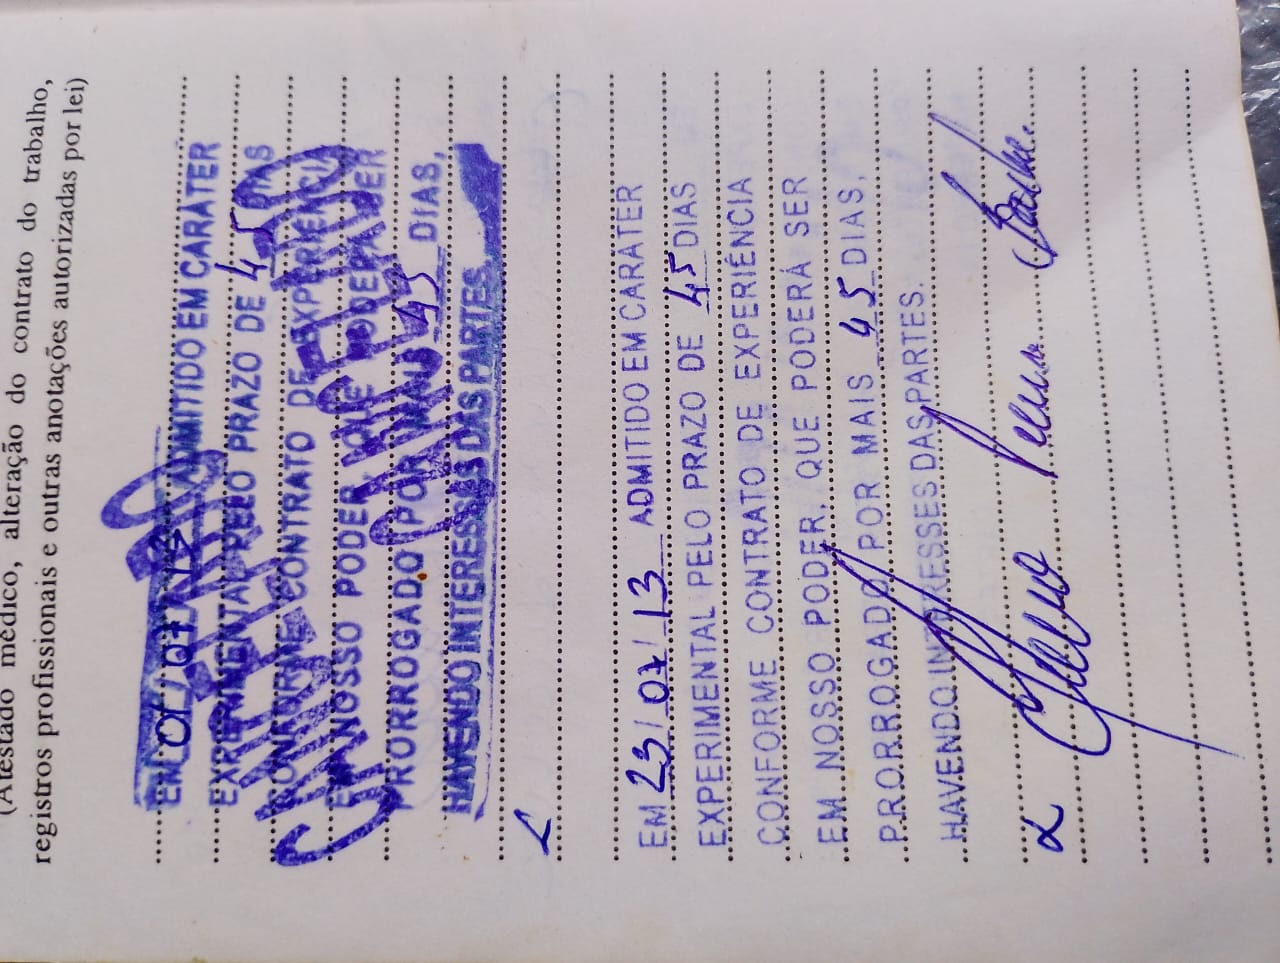 (Atestado médico, alteração do contrato do trabalho,
registros profissionais e outras anotações autorizadas por lei)
EM 01/07/13 ADMITIDO EM CARATER
EXPERIMENTAL PELO PRAZO DE 45 DIAS
CONFORME CONTRATO DE EXPERIÊNCIA
EM NOSSO PODER, QUE PODERÁ SER
PRORROGADO POR MAIS 45 DIAS,
HAVENDO INTERESSES DAS PARTES.
CANCELADO
CANCELADO
EM 23/07/13 ADMITIDO EM CARATER
EXPERIMENTAL PELO PRAZO DE 45 DIAS
CONFORME CONTRATO DE EXPERIÊNCIA
EM NOSSO PODER, QUE PODERÁ SER
PRORROGADO POR MAIS 45 DIAS,
HAVENDO INTERESSES DAS PARTES.